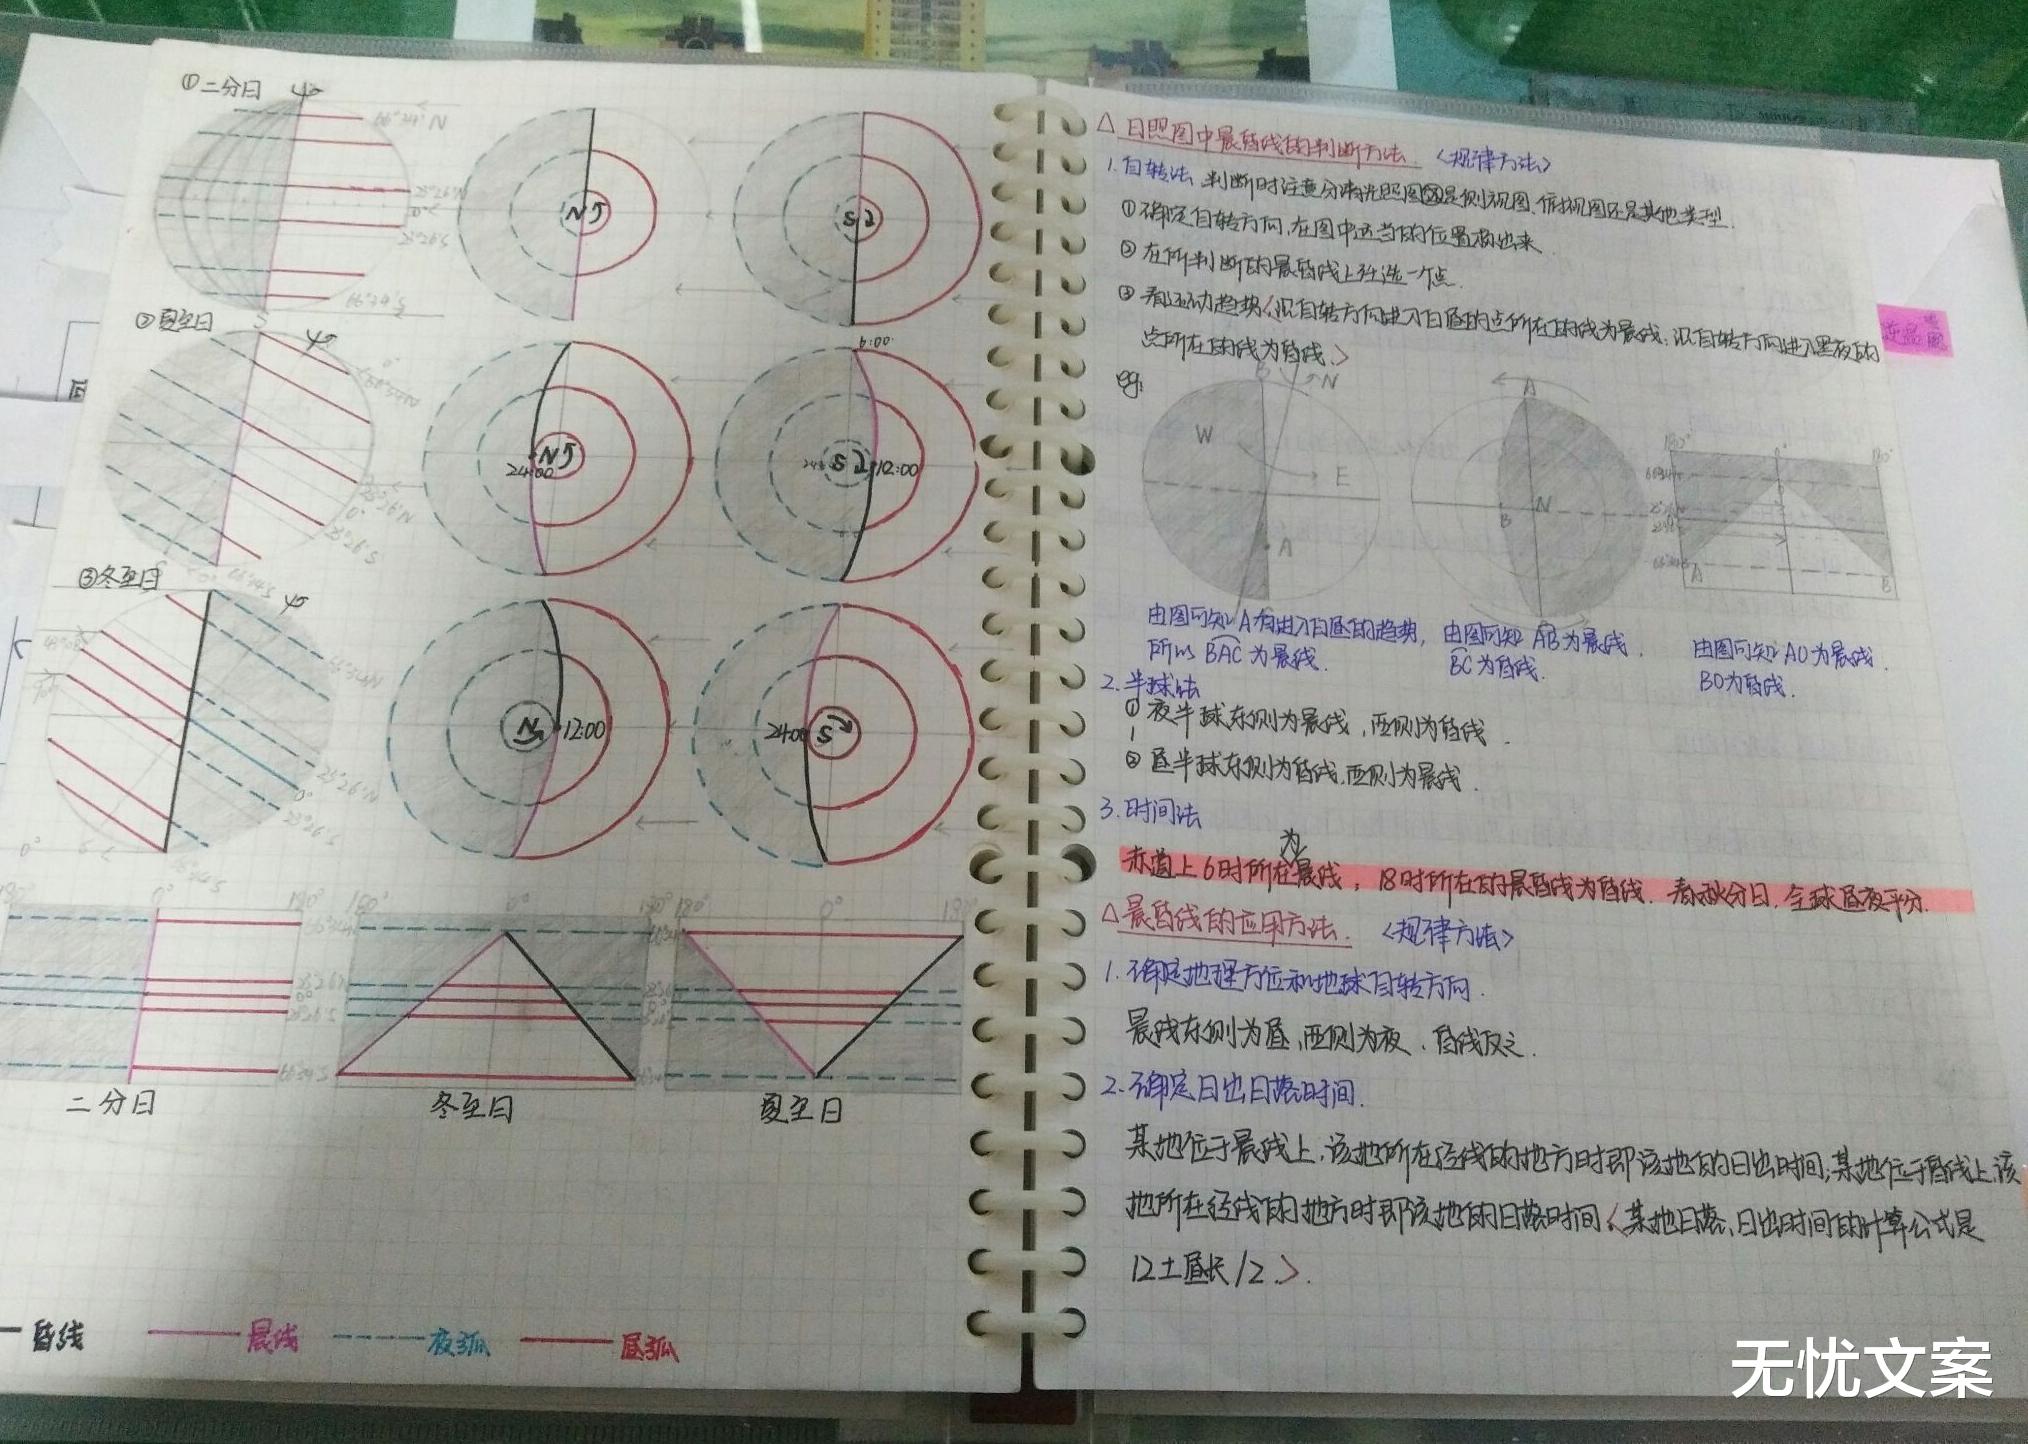 ①二分日
N
S
②夏至日
N
24:00
S
12:00
③冬至日
N
12:00
24:00
S
180°
0°
180°
180°
0°
180°
180°
0°
二分日
冬至日
夏至日
昏线
晨线
夜弧
昼弧
△日照图中晨昏线的判断方法 <规律方法>
1.自转法 判断时注意分清光照图是侧视图、俯视图还是其他类型.
①确定自转方向,在图中适当的位置标出来
②在所判断的晨昏线上任选一个点.
③看运动趋势<沿自转方向进入白昼的点所在的线为晨线,沿自转方向进入黑夜的
点所在的线为昏线.>
eg:
B
N
W
E
A
A
B
N
A
B
由图可知A有进入白昼的趋势,
所以BAC为晨线.
由图可知AB为晨线.
BC为昏线.
由图可知AO为晨线.
BO为昏线.
2.半球法
①夜半球东侧为晨线,西侧为昏线.
②昼半球东侧为昏线,西侧为晨线.
3.时间法
为
赤道上6时所在晨线,18时所在的晨昏线为昏线.春秋分日,全球昼夜平分.
△晨昏线的应用方法. <规律方法>
1.确定地理方位和地球自转方向.
晨线东侧为昼,西侧为夜.昏线反之.
2.确定日出日落时间.
某地位于晨线上,该地所在经线的地方时即该地的日出时间;某地位于昏线上,该
地所在经线的地方时即该地的日落时间<某地日落、日出时间的计算公式是
12±昼长/2.>.
无忧文案